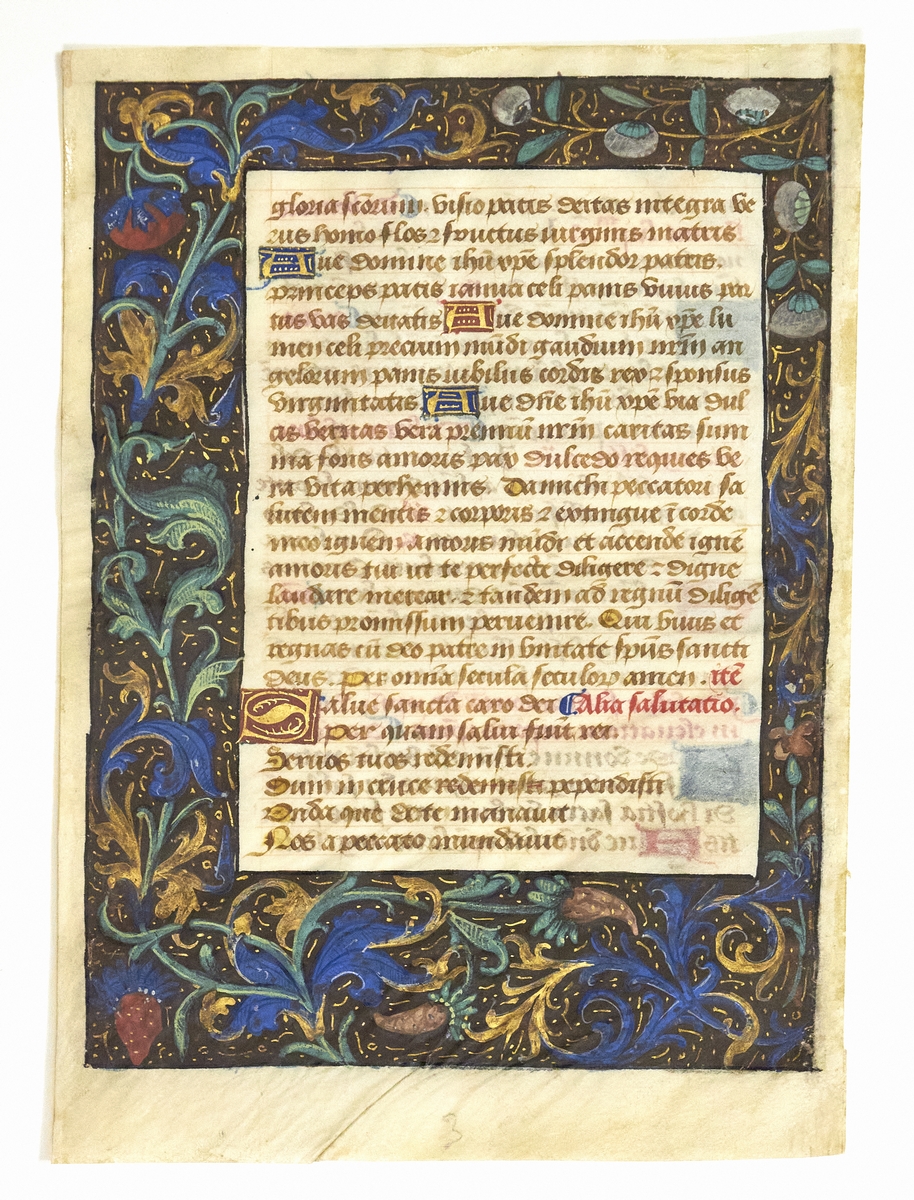 gloria scõrum. visio patis deitas integra ve
rus homo flos ⁊ fructus virginis matris
Aue domine ihũ xp̃e splendor patris.
princeps pacis ianua celi panis vivus par
tus vas deitatis Aue domine ihũ xp̃e lu
men celi precium mũdi gaudium nr̃m an
gelorum panis iubilus cordis rex ⁊ sponsus
virginitatis Aue dñe ihũ xp̃e via dul
cis veritas vera premiũ nr̃m caritas sum
ma fons amoris pax dulcedo requies ve
ra vita perhennis. Da michi peccatori sa
lutem mentis ⁊ corporis ⁊ extingue ĩ corde
meo ignem amoris mũdi et accende ignẽ
amoris tui ut te perfecte diligere ⁊ digne
laudare merear. ⁊ tandem ad regnũ diligẽ
tibus promissum pervenire. Qui vivis et
regnas cũ deo patre in vnitate sp̃us sancti
deus. Per om̃ia secula seculorꝫ amen. itẽ
Salue sancta caro dei Alia salutatio.
Per quam salui fiũt rei
Servos tuos redemisti
Dum in cruce redemisti pependisti
Onda que de te manauit
Nos a peccato mundauit
3